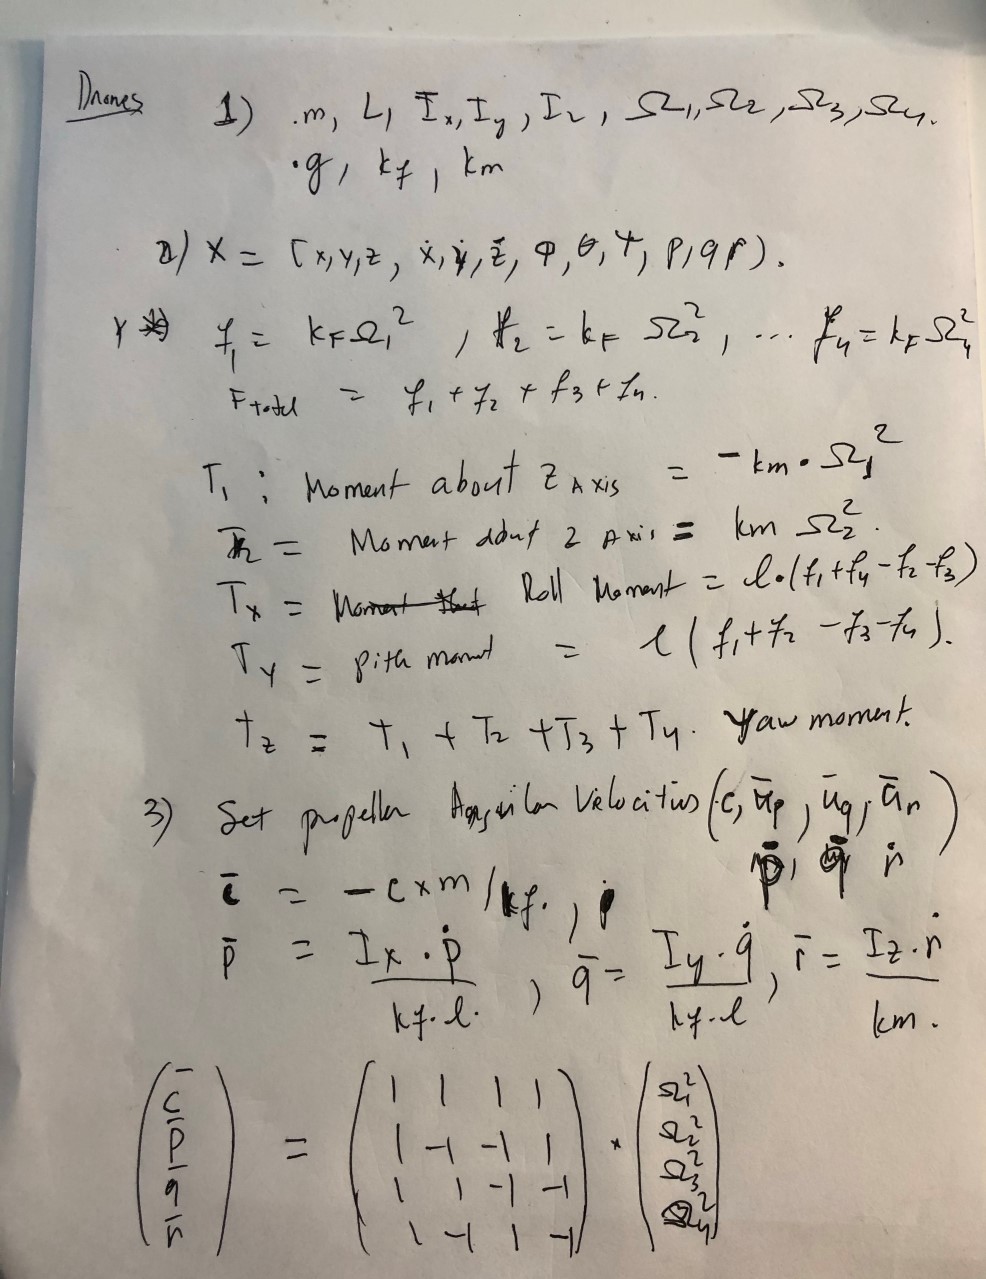 Drones
1) .m, L, Ix, Iy, Iz, Ω1, Ω2, Ω3, Ω4.
·g, kf, km
2) X = [x, y, z, ẋ, ẏ, ż, φ, θ, ψ, p, q r).
f1 = kF Ω1², f2 = kF Ω2², ... f4 = kF Ω4²
Ftotal = f1 + f2 + f3 + f4.
T1 : Moment about Z Axis = - km · Ω1²
T2 = Moment about Z Axis = km Ω2².
Tx = Roll Moment = l·(f1+f4-f2-f3)
Ty = pith moment = l (f1+f2 -f3-f4).
tz = T1 + T2 + T3 + T4. Yaw moment.
3) Set propeller Angular Velocities (c, ūp, ūq, ūr)
p̄, q̄ ṙ
c̄ = - c × m / kf. , ṗ
p̄ = Ix · ṗ / kf · l. , q̄ = Iy · q̇ / kf · l , r̄ = Iz · ṙ / km .
(c̄ p̄ q̄ r̄) = (1 1 1 1
1 -1 -1 1
1 1 -1 -1
1 -1 1 -1) · (Ω1² Ω2² Ω3² Ω4²)